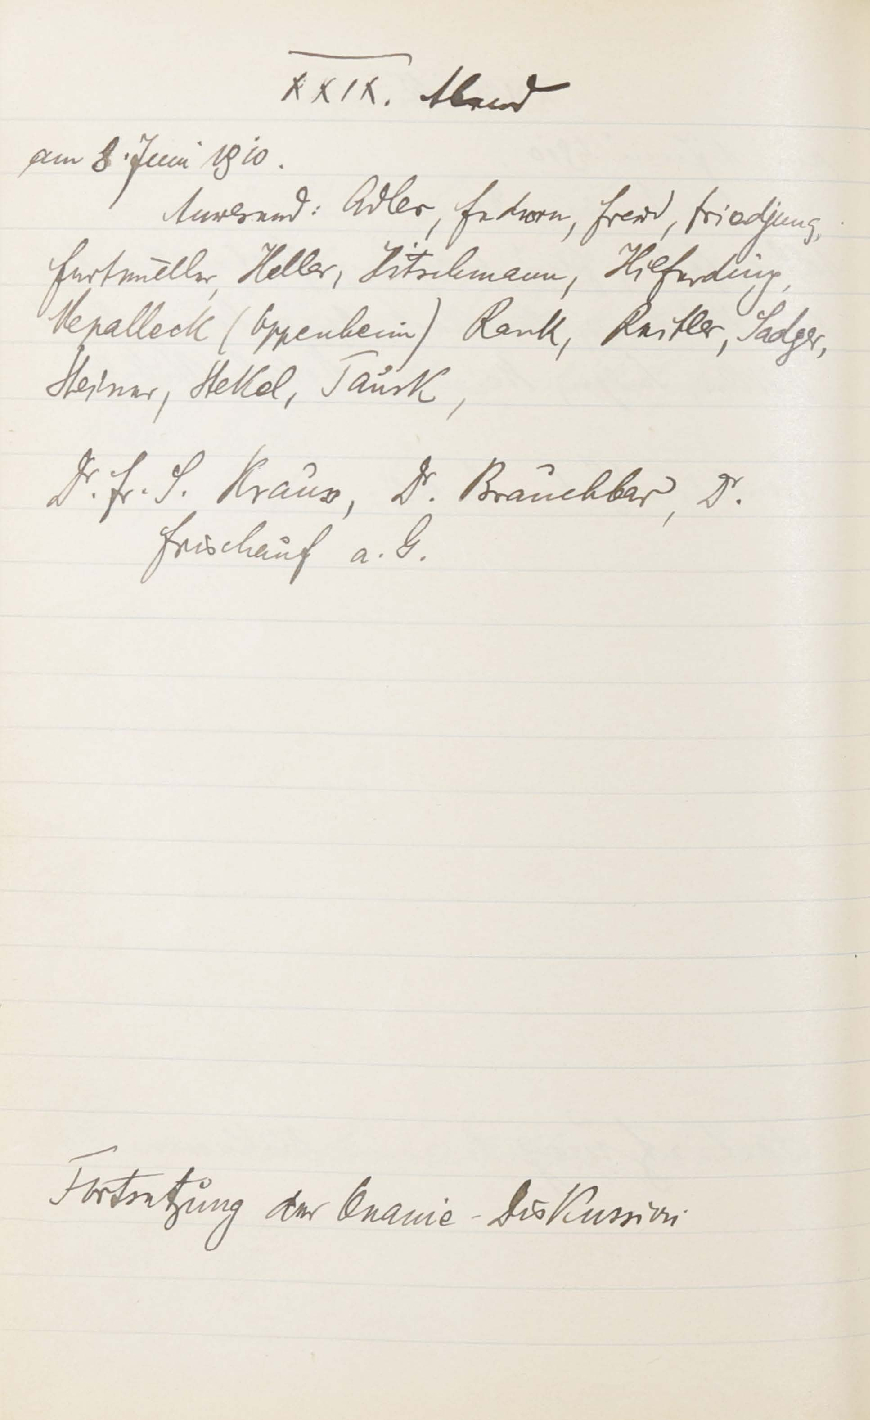 XXIX. Abend
am 8. Juni 1910.
Anwesend: Adler, Federn, Freud, Friedjung,
Furtmüller, Heller, Hitschmann, Hilferding,
Nepalleck (Oppenheim) Rank, Reitler, Sadger,
Steiner, Stekel, Tausk,
Dr. Fr. S. Krauss, Dr. Brauchbar, Dr.
Frischauf a. G.
Fortsetzung der Onanie-Diskussion